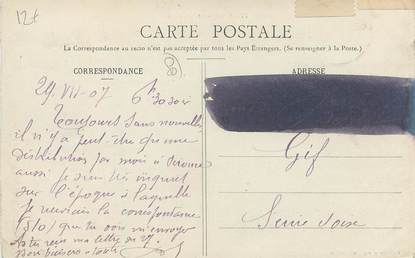 12f
CARTE POSTALE
La Correspondance au recto n'est pas acceptée par tous les Pays Étrangers. (Se renseigner à la Poste.)
CORRESPONDANCE
ADRESSE
29. VII-07 6h 30 soir
Toujours sans nouvelles
il n'y a peut-être qu'une
distribution par mois à
aussi je suis très inquiet
sur l'époque à laquelle
je recevrai la correspondance
que tu dois m'envoyer
As tu reçu ma lettre du 27.
Bons baisers à
Gif
Seine & Oise